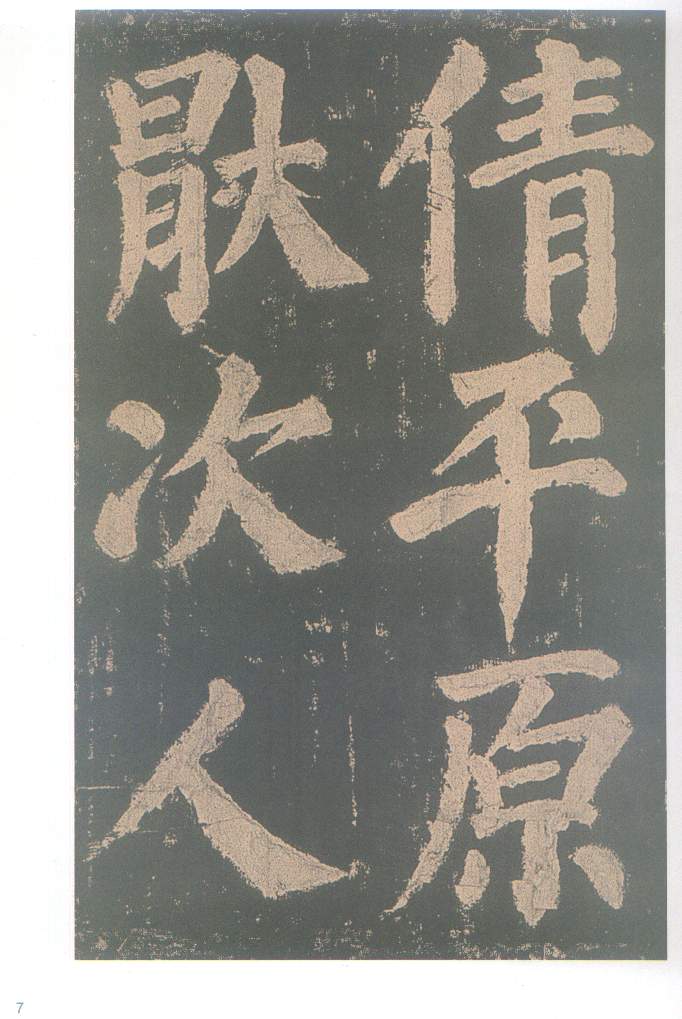 倩平原
猒次人
7